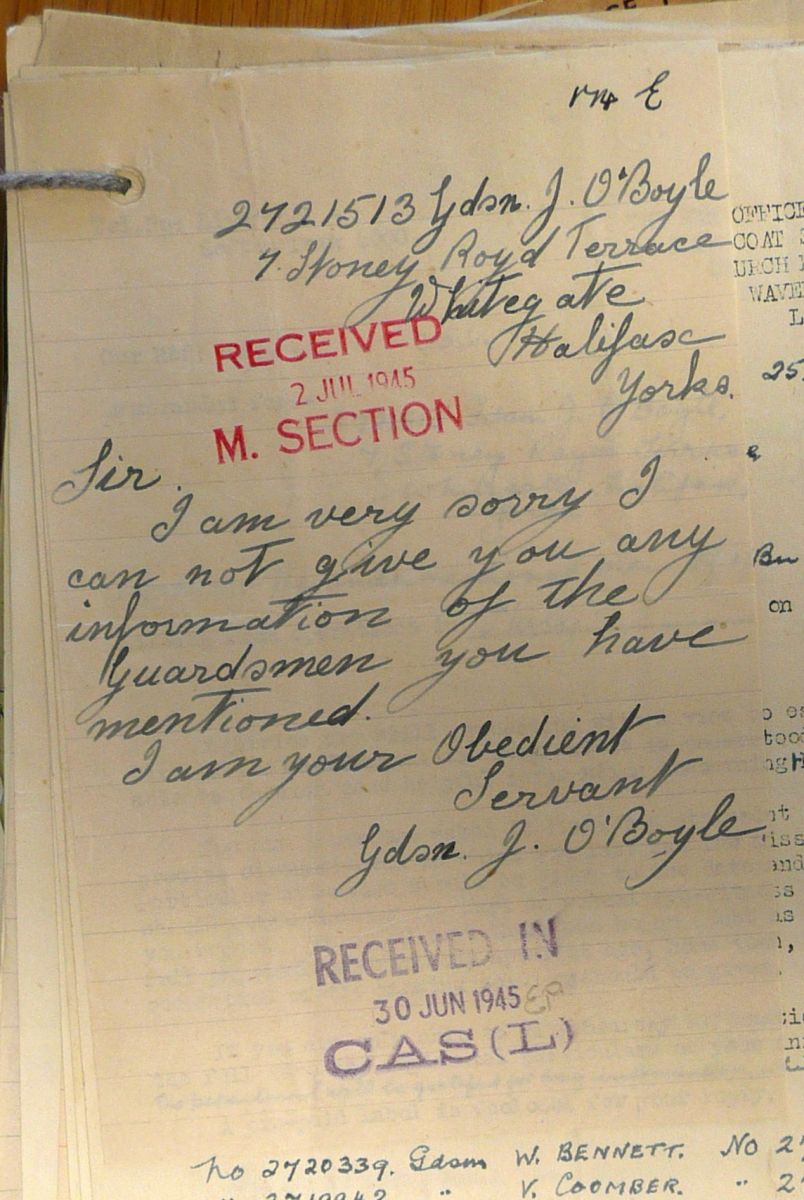 E
2721513 Gdsn. J. O'Boyle
7. Stoney Royd Terrace
Whitegate
Halifax
Yorks.
RECEIVED
2 JUL 1945
M. SECTION
Sir.
I am very sorry I
can not give you any
information of the
Guardsmen you have
mentioned.
I am your Obedient
Servant
Gdsn. J. O'Boyle
RECEIVED IN
30 JUN 1945
CAS(L)
No 2720339. Gdsm W. BENNETT. No
" V. COOMBER. "
OFFICE
COAT S
URCH
WAVE
L
25
on